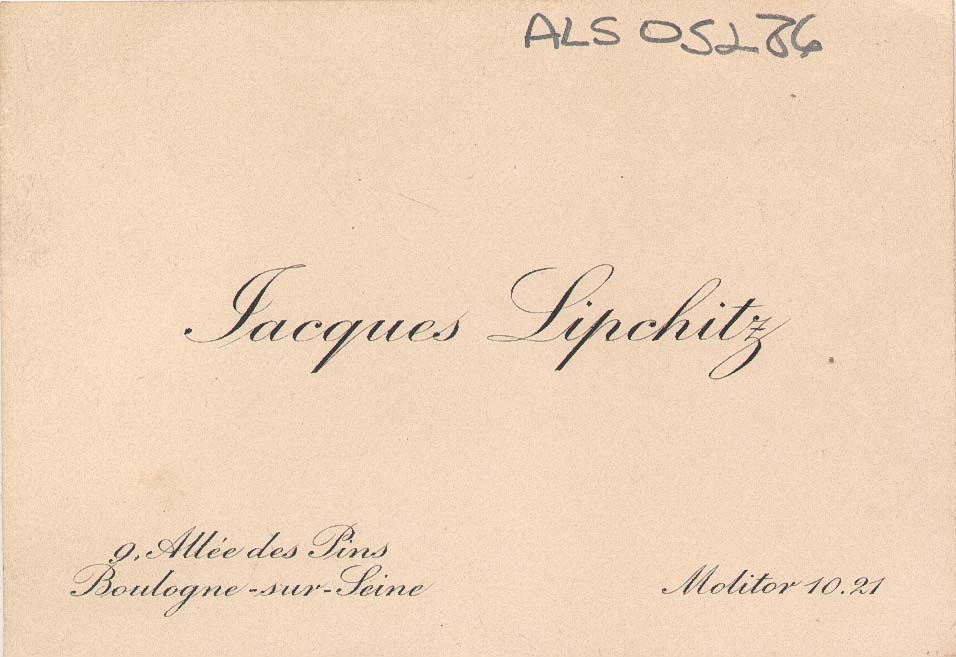 ALS 05286
Jacques Lipchitz
9, Allée des Pins
Boulogne-sur-Seine
Molitor 10.21